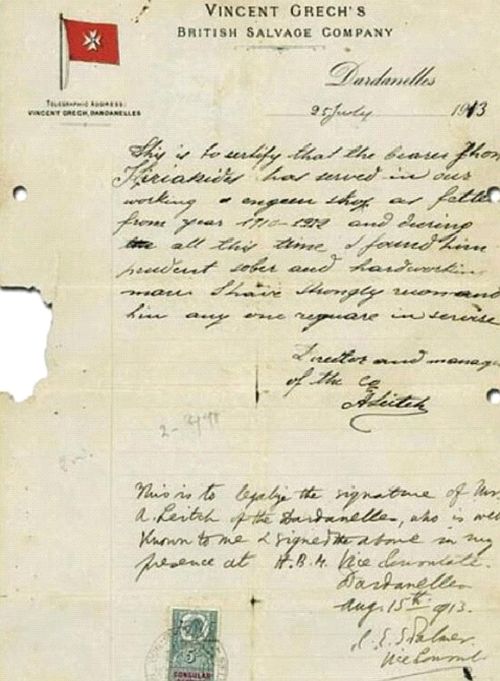 VINCENT GRECH'S
BRITISH SALVAGE COMPANY
TELEGRAPHIC ADDRESS:
VINCENT GRECH, DARDANELLES
Dardanelles
25 July 1913
This is to sertify that the bearer Jhon
Kiriakides has served in our
working & engeen shop as fetter
from year 1910-1912 and during
all this time I found him
prudent sober and hardworking
man I have strongly recomand
him any one requare in servise
Director and manager
of the Co
A Leitch
This is to legalize the signature of Mr
A. Leitch of the Dardanelles, who is well
known to me & signed the above in my
presence at H.B.M. Vice Consulate.
Dardanelles
Aug. 15th 1913.
C. E. S. Palmer
Vice Consul
5
CONSULAR